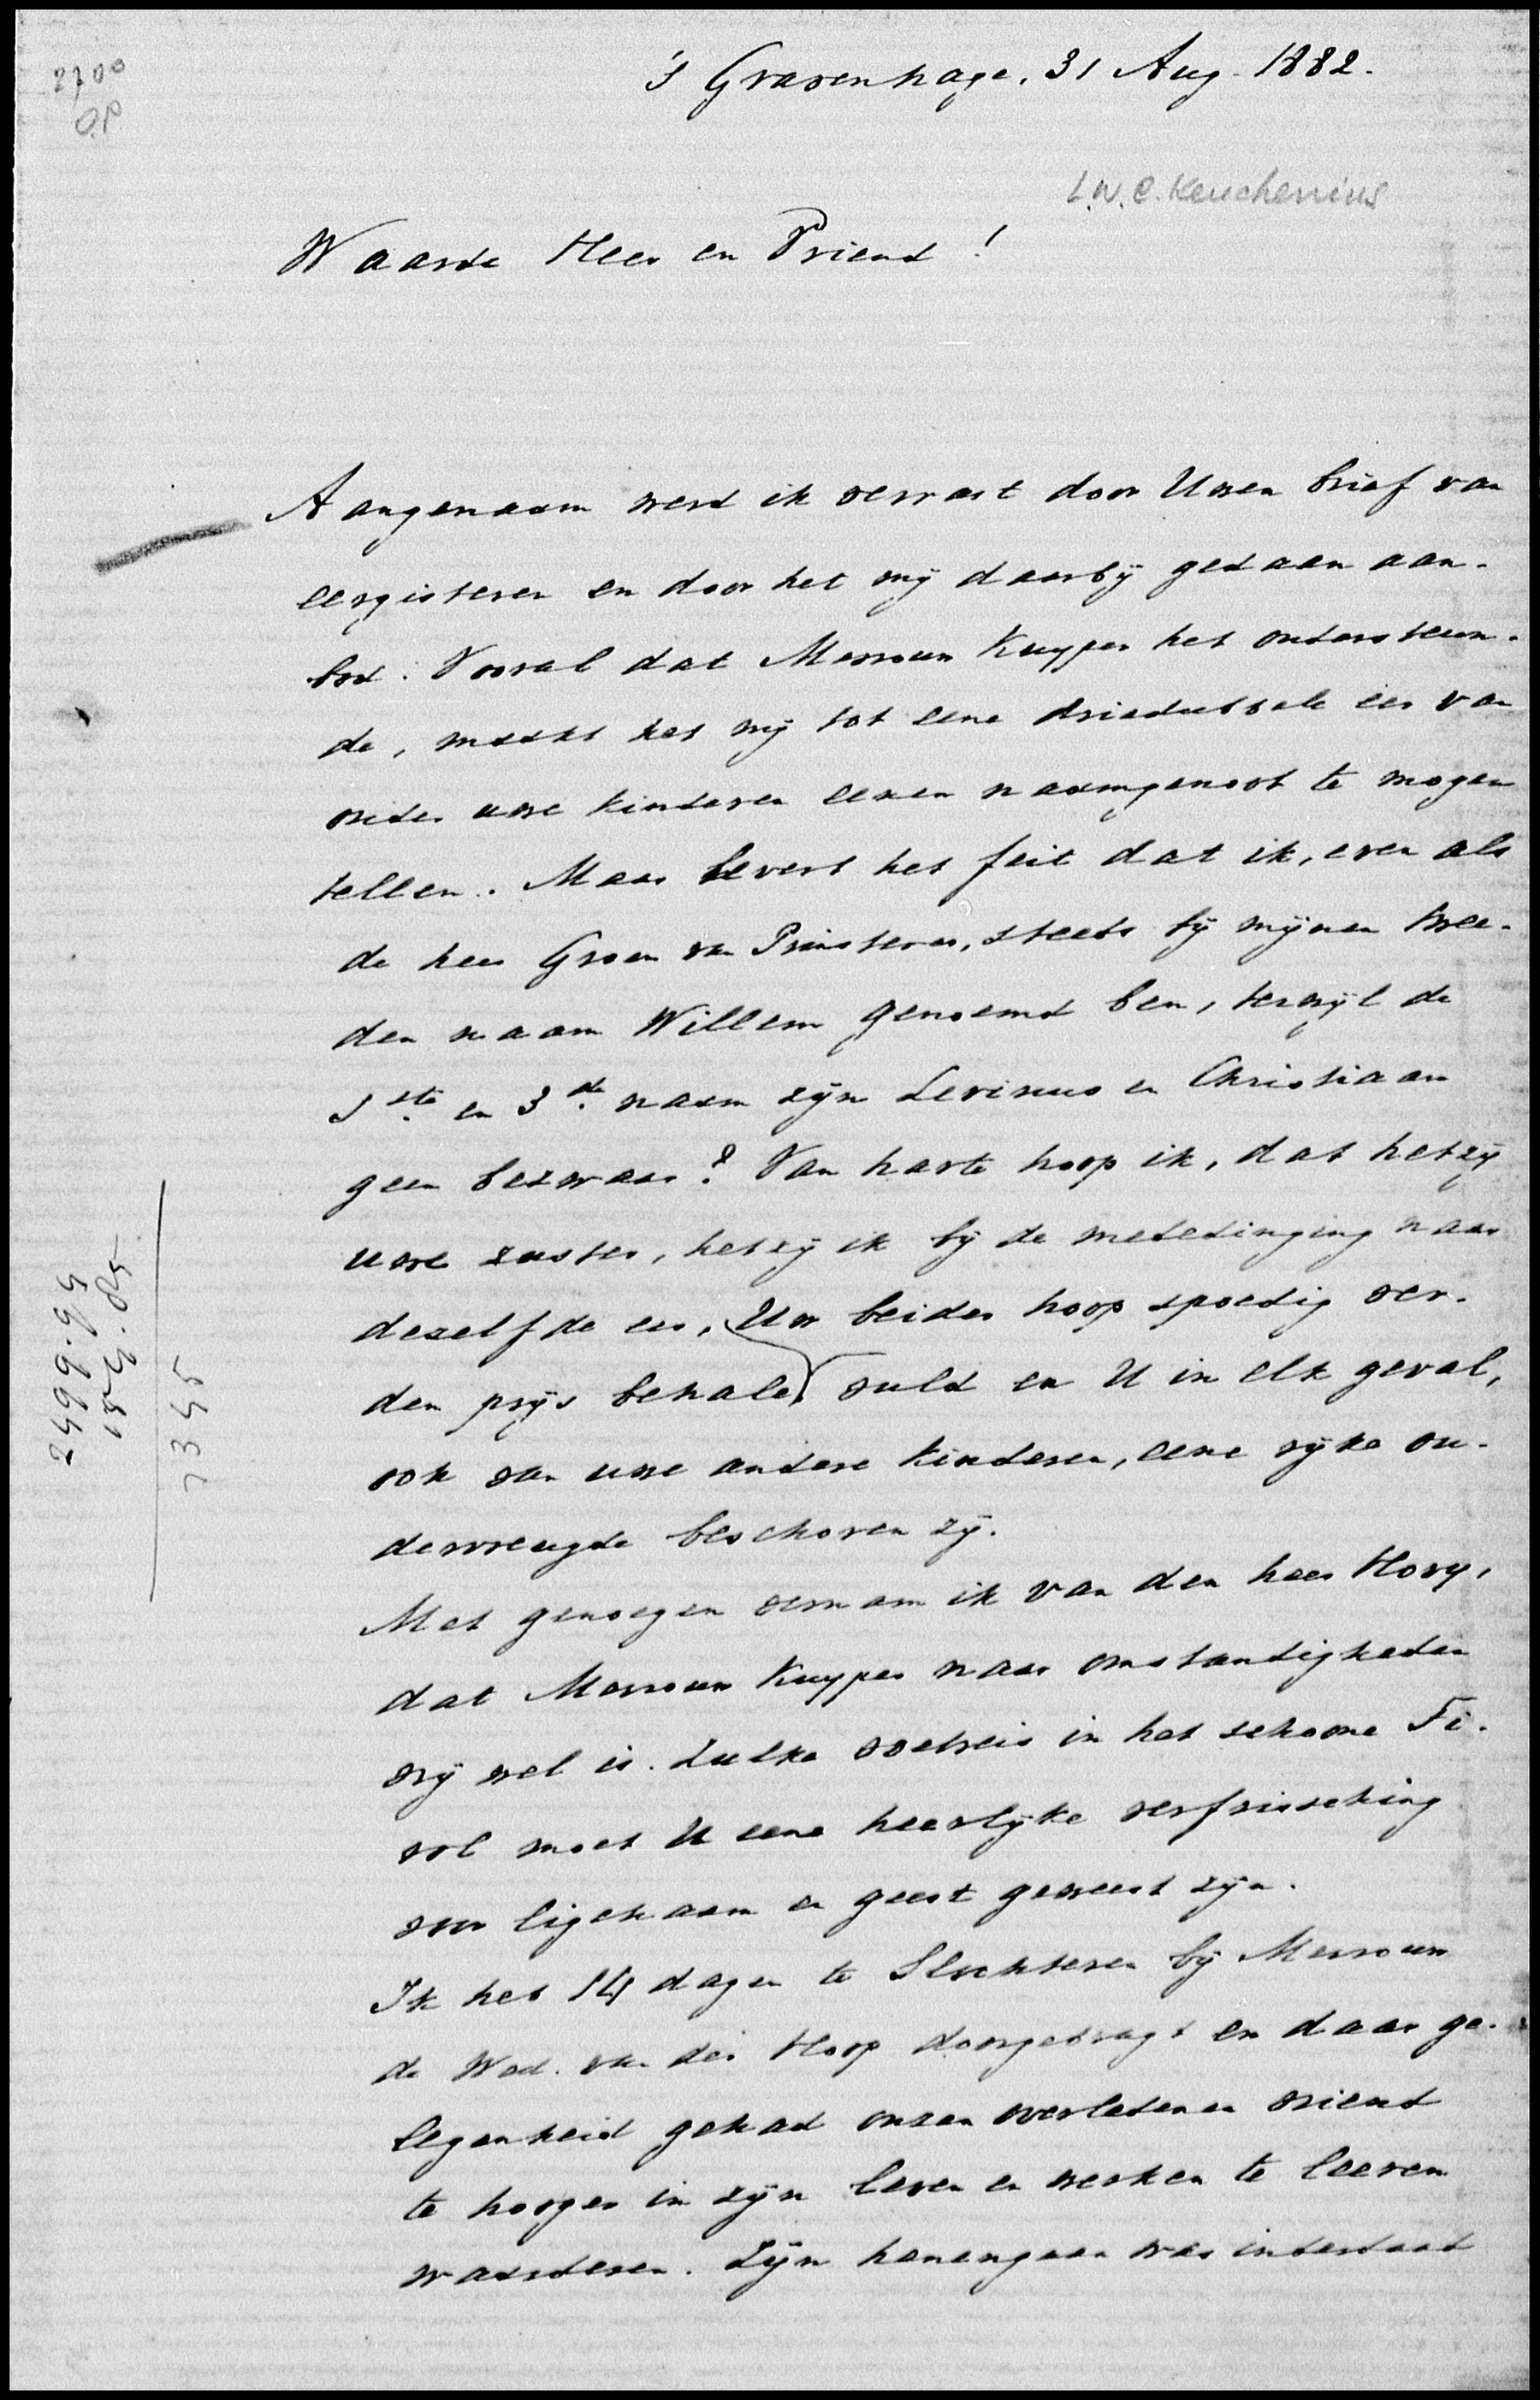 2700
O.P
's Gravenhage, 31 Aug. 1882.
L.W.C. Keuchenius
Waarde Heer en Vriend!
Aangenaam werd ik verrast door Uwen brief van
eergisteren en door het mij daarbij gedaan aan-
bod. Vooral dat Mevrouw Kuyper het ondersteun-
de, maakt het mij tot eene driedubbele eer van
onder uwe kinderen eenen naamgenoot te mogen
tellen. Maar levert het feit dat ik, even als
de heer Groen van Prinsterer, steeds bij mijnen twee-
den naam Willem genoemd ben, terwijl de
1ste en 3de naam zijn Levinus en Christiaan
geen bezwaar? Van harte hoop ik, dat hetzij
uwe zuster, hetzij ik bij de mededinging naar
dezelfde eer, Uw beider hoop spoedig ver-
den prijs behale, vuld en U in elk geval,
ook van uwe andere kinderen, eene rijke ou-
dervreugde beschoren zij.
Met genoegen vernam ik van den heer Hovy,
dat Mevrouw Kuyper naar omstandigheden
vrij wel is. Zulke voetreis in het schoone Ti-
rol moet U eene heerlijke verfrissching
voor ligchaam en geest geweest zijn.
Ik heb 14 dagen te Slochteren bij Mevrouw
de Wed. van der Hoop doorgebragt en daar ge-
legenheid gehad onzen overledenen vriend
te hooger in zijn leven en werken te leeren
waarderen. Zijn henengaan was inderdaad
7345